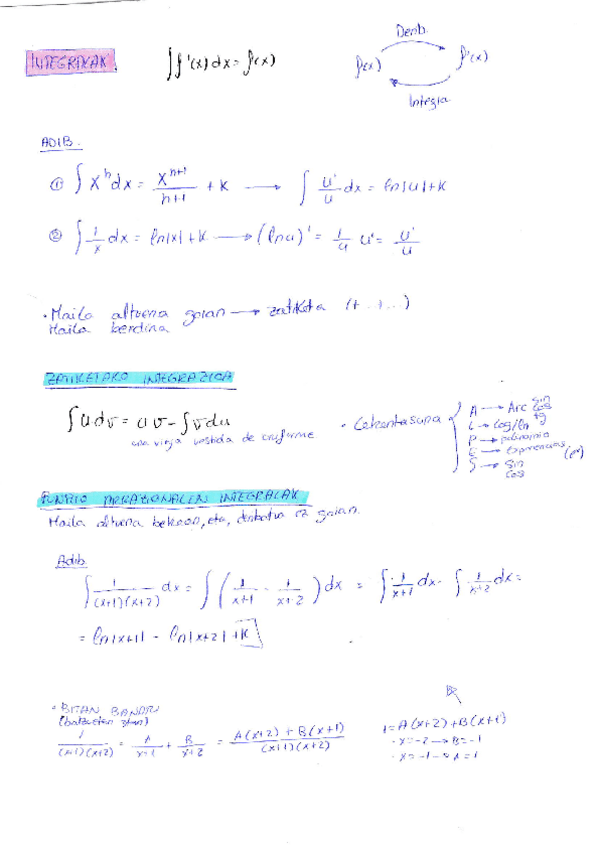 Derib.
INTEGRALAK ∫f'(x)dx = f(x) f(x) f'(x)
Integra.
ADIB.
① ∫xⁿdx = xⁿ⁺¹/(n+1) + K → ∫ u'/u dx = ln|u|+K
② ∫ 1/x dx = ln|x|+K → (ln u)' = 1/u u' = u'/u
· Maila altuena goian → zatiketa (+..+...)
Maila berdina
ZATIKETAKO INTEGRAZIOA
∫u dv = uv - ∫v du
una vieja vestida de uniforme
· Lehentasuna
A → Arc sin cos tg
L → Log/Ln
P → polinomio
E → Exponencias (eˣ)
S → Sin
Cos
FUNTZIO ARRAZIONALEN INTEGRALAK
Maila altuena behean, eta, deribatua ez goian.
Adib.
∫ 1/((x+1)(x+2)) dx = ∫ (1/(x+1) - 1/(x+2)) dx = ∫ 1/(x+1) dx - ∫ 1/(x+2) dx =
= ln|x+1| - ln|x+2| + K
· BITAN BANATU
1/((x+1)(x+2)) = A/(x+1) + B/(x+2) = (A(x+2) + B(x+1))/((x+1)(x+2))
1 = A(x+2) + B(x+1)
· x=-2 → B=-1
· x=-1 → A=1